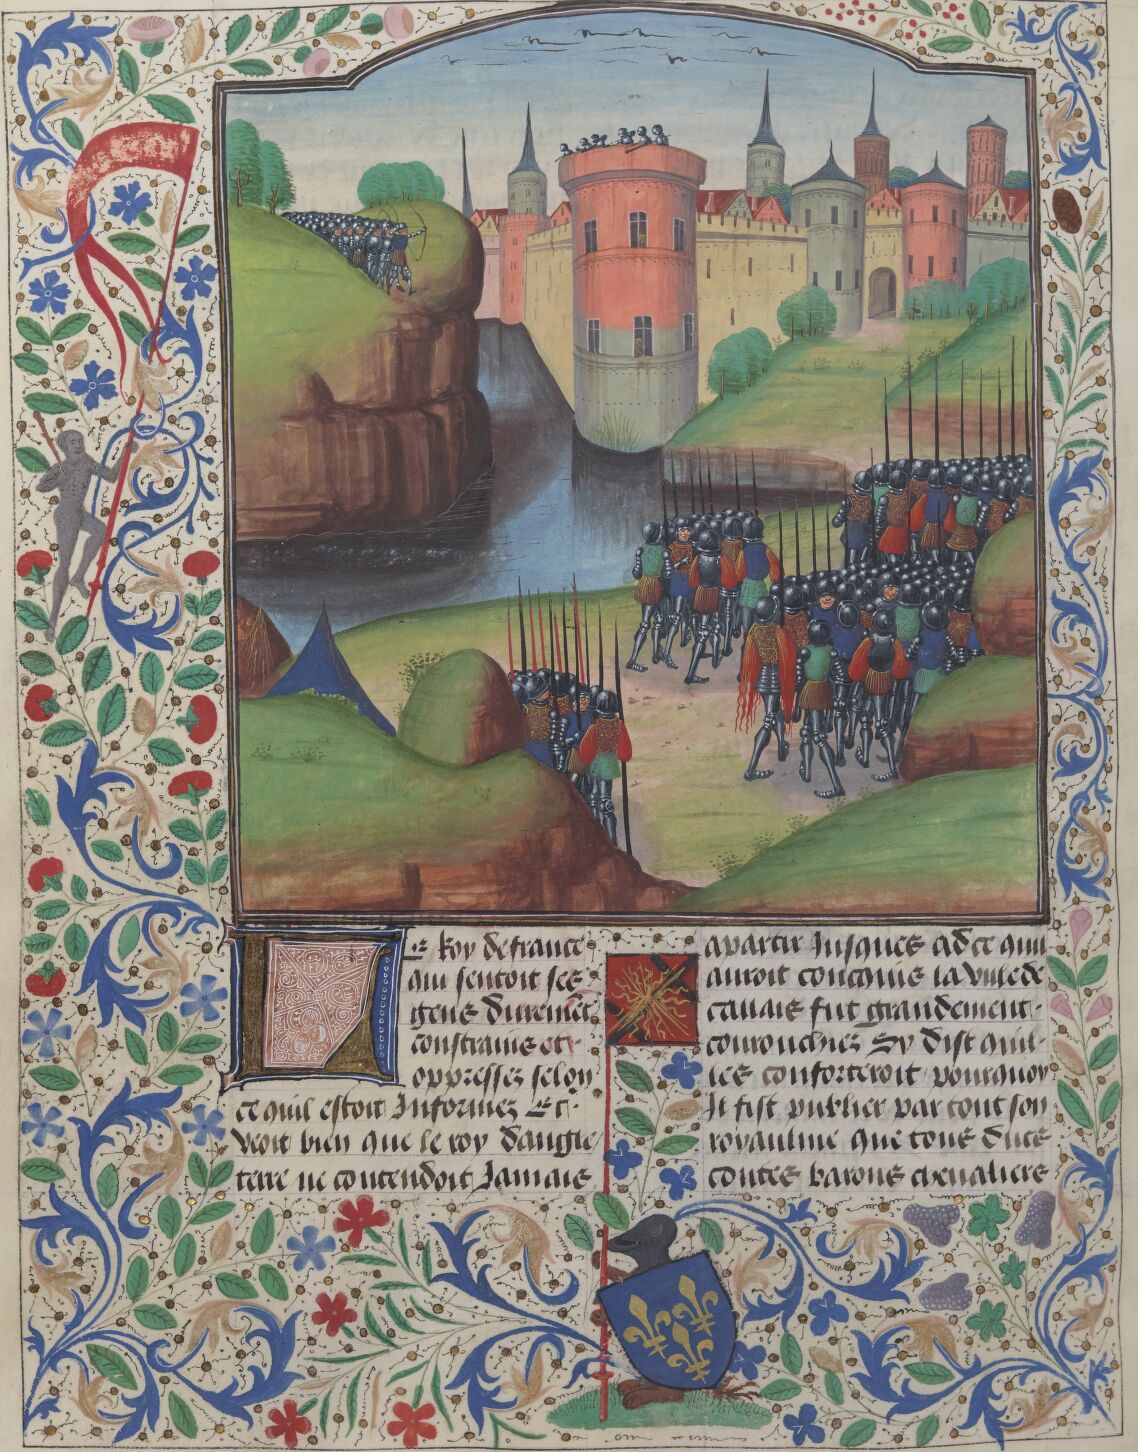 Le Roy de france
qui sentoit ses
gens durement
constrains et
oppressez selon
ce quil estoit Informez Et
veoit bien que le roy dangle
terre ne contendoit Jamais
a partir Jusques ad ce quil
auroit concquis la ville de
callais fut grandement
courouchiez Sy dist quil
les conforteroit pourquoy
Il fist publier par tout son
royaulme que tous ducs
contes barons chevaliers